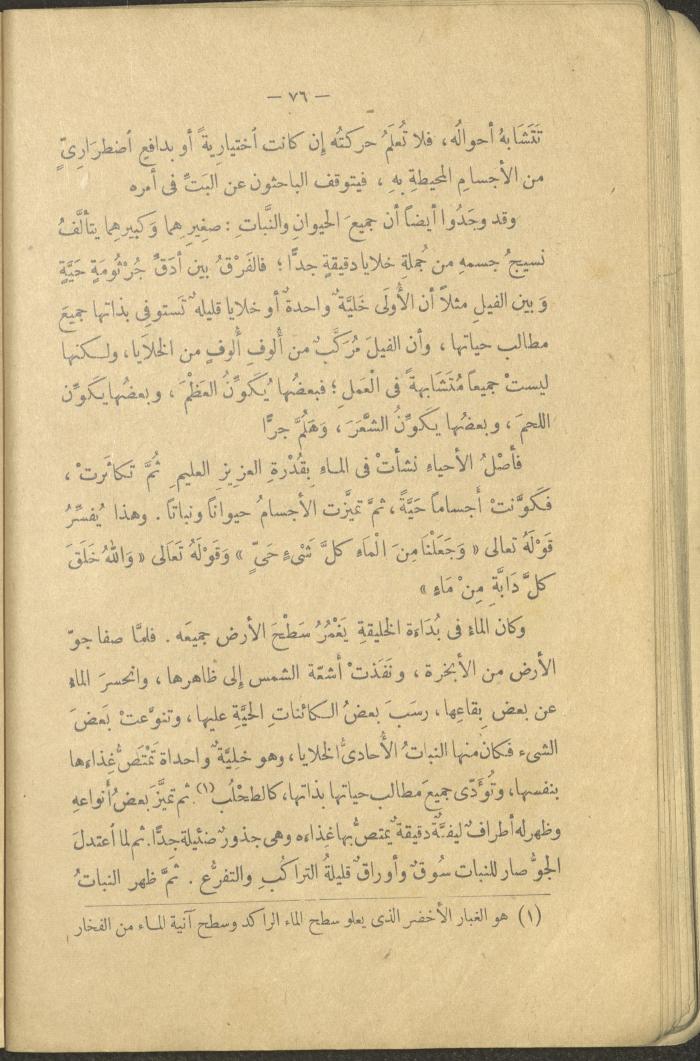 — ٧٦ —
تَتَشَابهُ أحوالُه ، فلا تُعلَمُ حركتُه إن كانت أختيارِيةً أو بدافعٍ أضطرَارِىٍّ
من الأجسامِ المحيطةِ بهِ ، فيتوقف الباحثون عن البَتِّ فى أمره
وقد وجَدُوا أيضاً أن جميعَ الحيوانِ والنَّباتِ : صغِيرِهِما وَكبيرهِما يتألَّفُ
نسيجُ جسمهِ من جُملةِ خلايا دقيقةٍ جدًّا ؛ فالفَرْقُ بين أدَقِّ جُرْثُومَةٍ حَيَّةٍ
وَبين الفيلِ مثلاً أن الأُولَى خَليَّةٌ واحدةٌ أو خلايا قليله ٌ تَستوفِى بذاتها جميعَ
مطالب حياتها ، وأن الفيلَ مُرَكَّبٌ من أُلوفِ أُلوفٍ من الخلَايا ، ولـكنها
ليستْ جميعاً مُتَشَابهةً فى الْعَملِ ؛ فبعضُها يُكوِّنُ العَظْمَ ، وبعضُها يكَوِّن
اللحمَ ، وبعضُها يكَوِّنُ الشَّعَرَ ، وَهَلُمَّ جرًّا
فأصْلُ الأحياءِ نشأتْ فى المـاءِ بِقُدْرةِ العزيزِ العليمِ ثُمَّ تـكاثَرتْ ،
فـكَوَّنتْ أجساماً حَيَّةً ، ثمَّ تميَّزت الأجسامُ حيواناً ونباتاً . وهذا يُفسِّرُ
قَوْلَهُ تعالى « وَجَعَلْنَا مِنَ الْمَاءِ كلَّ شَىْءٍ حَىٍّ » وَقَوْلَهُ تَعَالى « وَاللهُ خَلَقَ
كلَّ دَابَّةٍ مِنْ مَاءٍ »
وكان الماءُ فى بُدَاءَة الخليقةِ يَغْمُرُ سَطْحَ الأرض جميعَه . فلمَّا صفا جوّ
الأرض مِن الأبخرة ، ونفَذتْ أشعّة الشمس إلى ظاهرها ، وانحسرَ الماءُ
عن بعض بِقاعِها ، رسَبَ بعضُ الـكائناتِ الحَيَّةِ عليها ، وتنوَّعتْ بَعضَ
الشىء فـكانَ منها النباتُ الأُحادىُّ الخلايا ، وهو خليَّةٌ واحداة تَمْتَصُّ غِذاءَها
بنفسها ، وتُؤَدّى جميعَ مطالب حياتها بذاتها ، كالطحْلُب (١) . ثم تميَّزَ بَعضُ أنواعهِ
وظهر له أطراف ٌ ليفيَّةٌ دقيقةٌ يمتصُّ بها غِذاءَه وهى جذورٌ ضئيلة جدًّا . ثم لما أعتدلَ
الجوُّ صار للنبات سُوقٌ وأوراقٌ قليلةُ التراكُبِ والتفرُّع . ثمَّ ظهر النباتُ
(١) هو الغبار الأخضر الذى يعلو سطح الماء الراكد وسطح آنية المـاء من الفخار